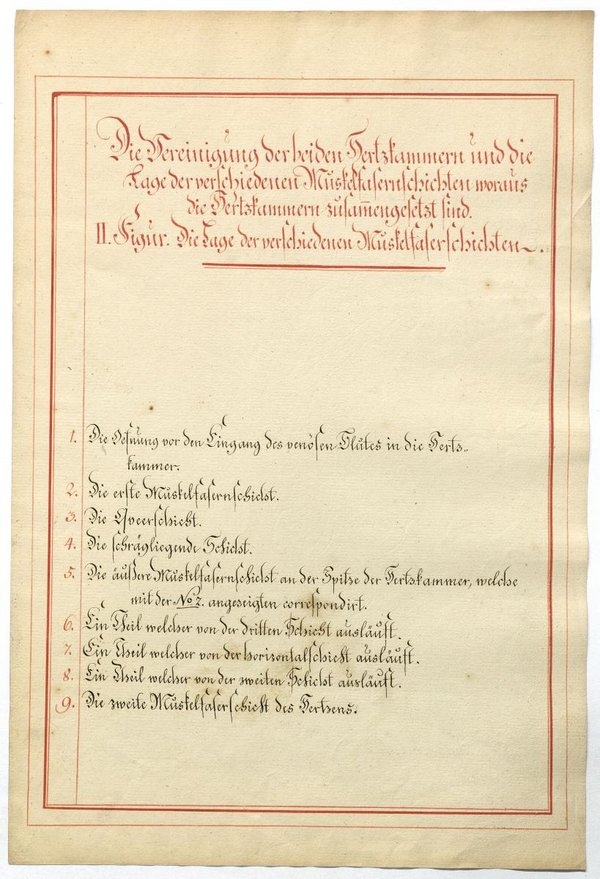 Die Vereinigung der beiden Hertzkammern und die
Lage der verschiedenen Muskelfasernschichten woraus
die Hertzkammern zusam̄engesetzt sind.
II. Figur. Die Lage der verschiedenen Muskelfaserschichten.
1. Die Oefnung vor den Eingang des venösen Blutes in die Hertz-
kammer.
2. Die erste Muskelfasernschicht.
3. Die Queerschicht.
4. Die schrägliegende Schicht.
5. Die äußere Muskelfasernschicht an der Spitze der Hertzkammer, welche
mit der No 2. angezeigten correspondirt.
6. Ein Theil welcher von der dritten Schicht ausläuft.
7. Ein Theil welcher von der horizontalschicht ausläuft.
8. Ein Theil welcher von der zweiten Schicht ausläuft.
9. Die zweite Muskelfaserschicht des Hertzens.